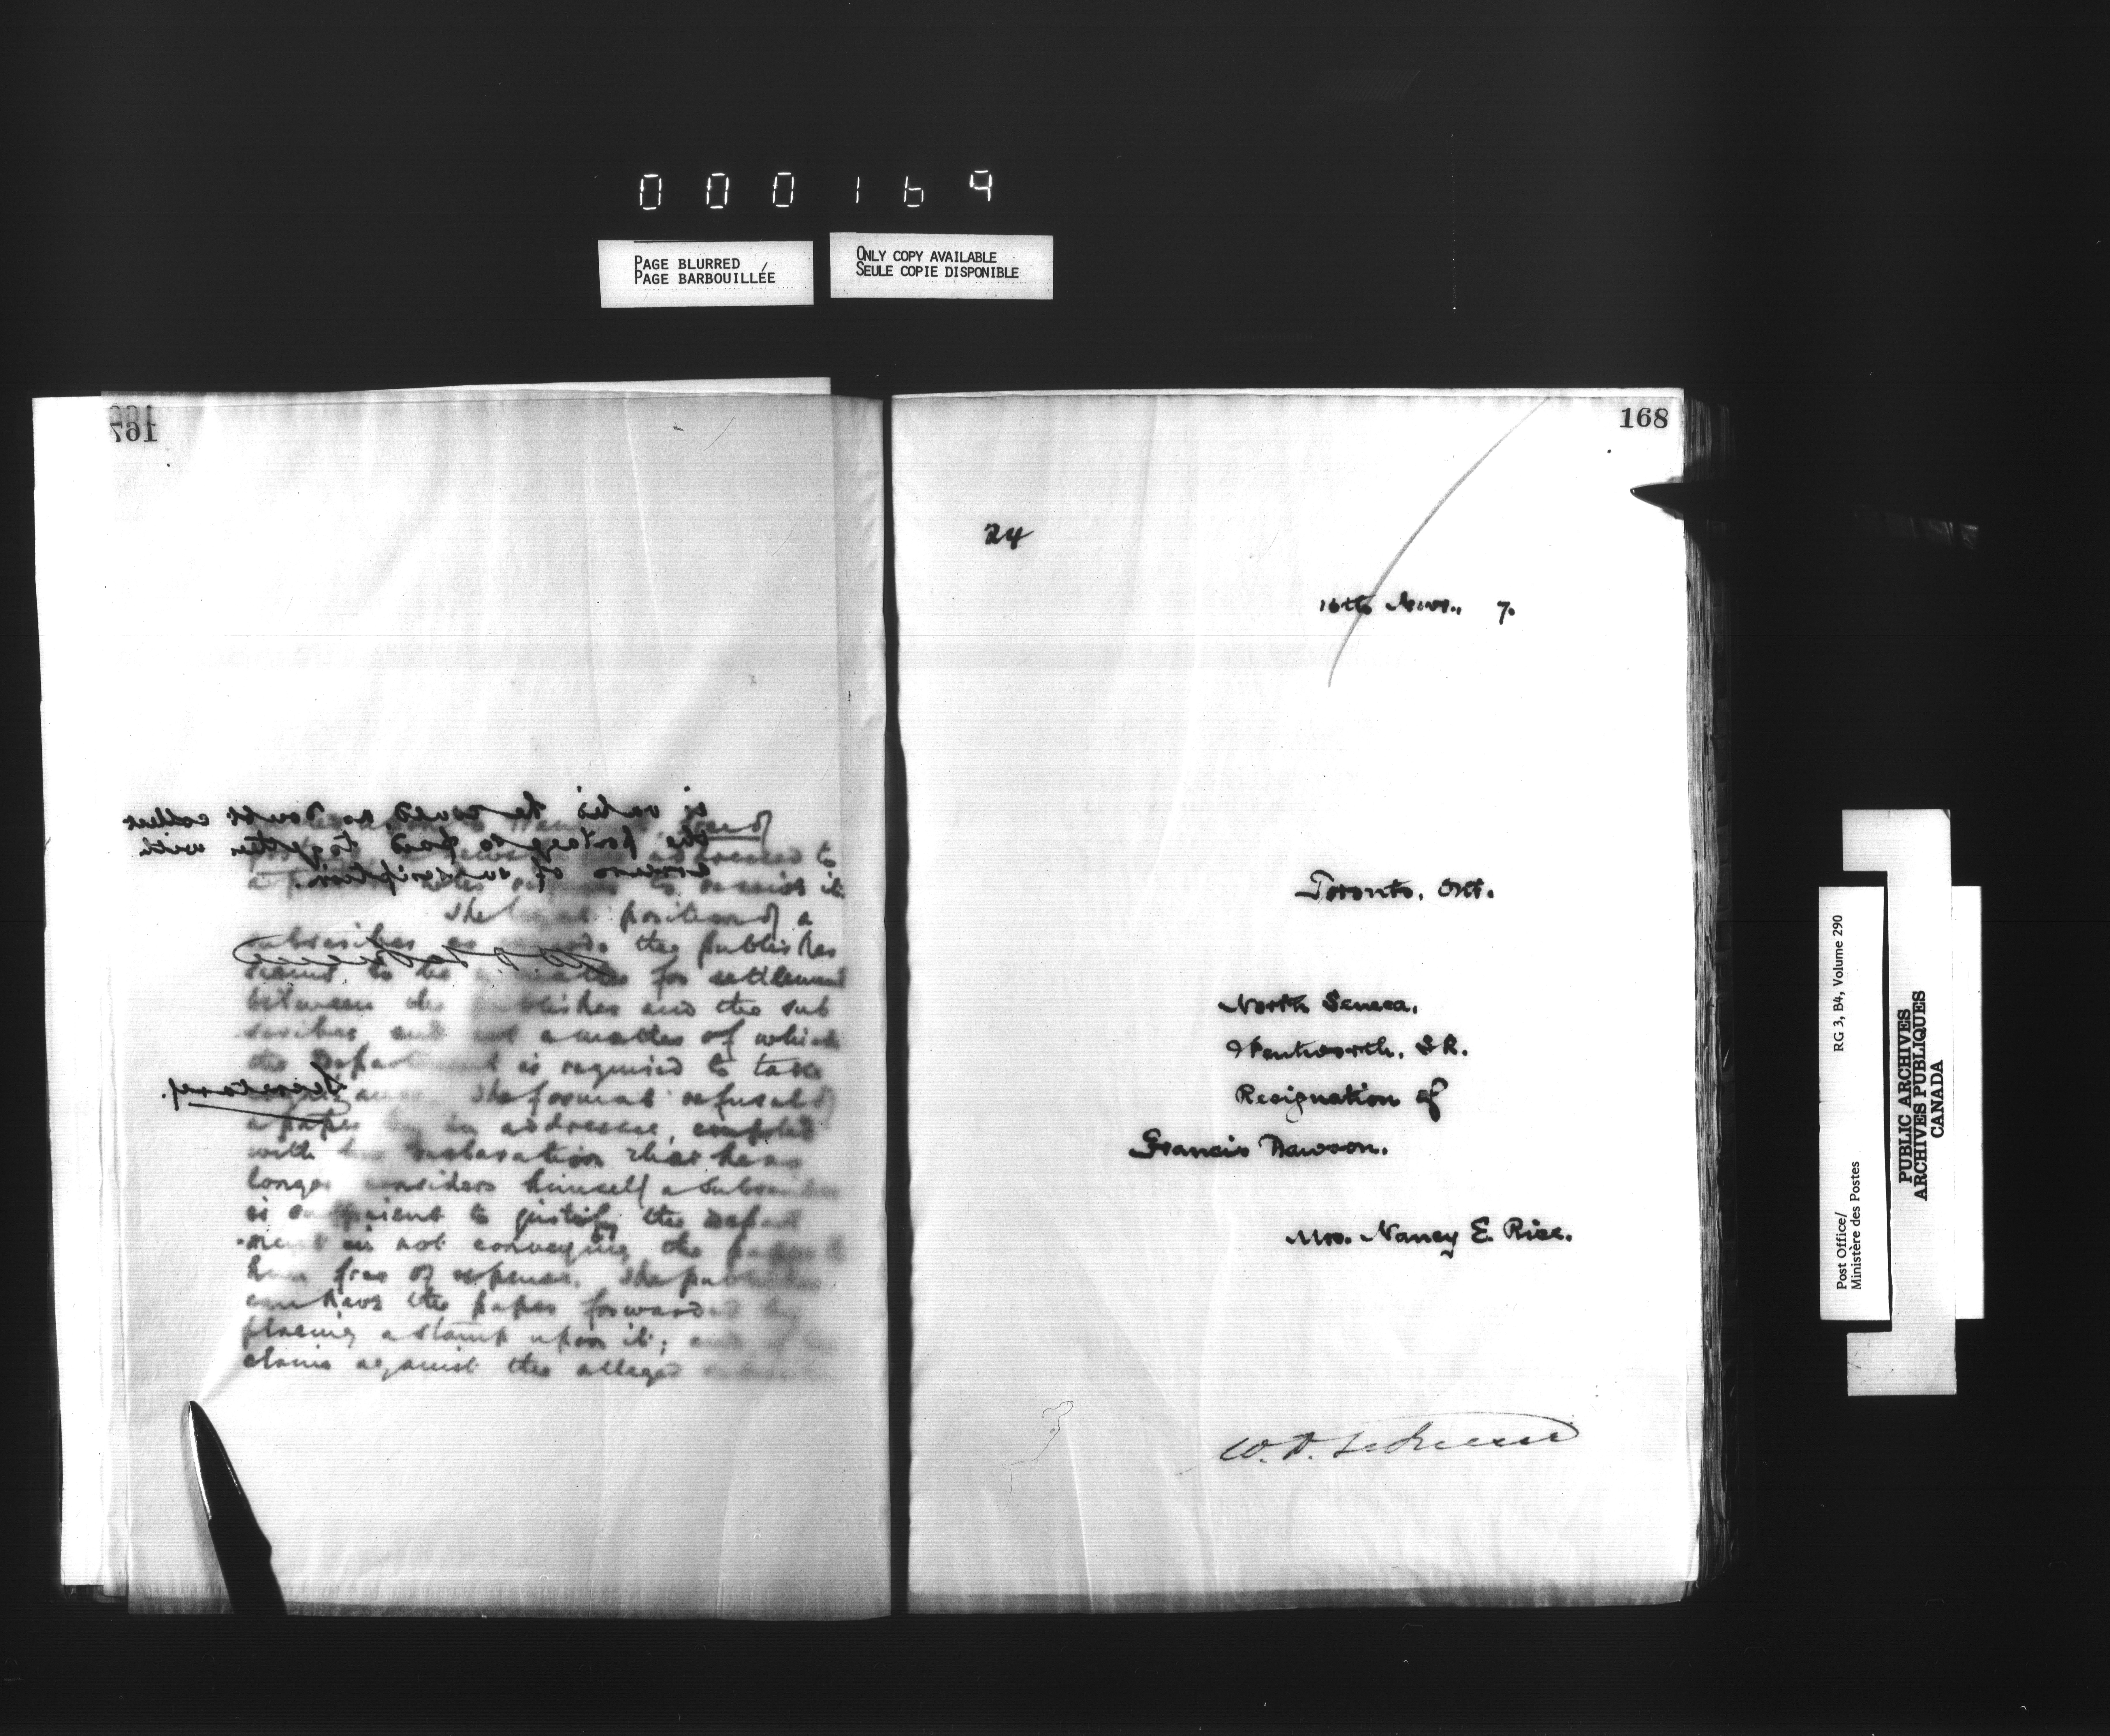 000169
PAGE BLURRED
PAGE BARBOUILLÉE
ONLY COPY AVAILABLE
SEULE COPIE DISPONIBLE
167
is valid he could no doubt collect
the postage paid together with
arrears of subscription.
Secretary.
addressed to
to receive it.
The legal position of a
subscriber as the publisher
seems to be a matter for settlement
between the publisher and the sub
scriber and not a matter of which
the Department is required to take
The formal refusal of
a paper by an addressee, coupled
with his declaration that he no
longer considers himself a subscriber
is sufficient to justify the Depart
-ment in not conveying the paper to
him free of expense. The publisher
can have the paper forwarded by
placing a stamp upon it; and if his
claim against the alleged
168
24
16th Novr., 7.
Toronto, Ont.
North Seneca,
Wentworth, S.R.
Resignation of
Francis Dawson.
Mrs. Nancy E. Rice.
W. D. LeSueur
Post Office/
Ministère des Postes
RG 3, B4, Volume 290
PUBLIC ARCHIVES
ARCHIVES PUBLIQUES
CANADA